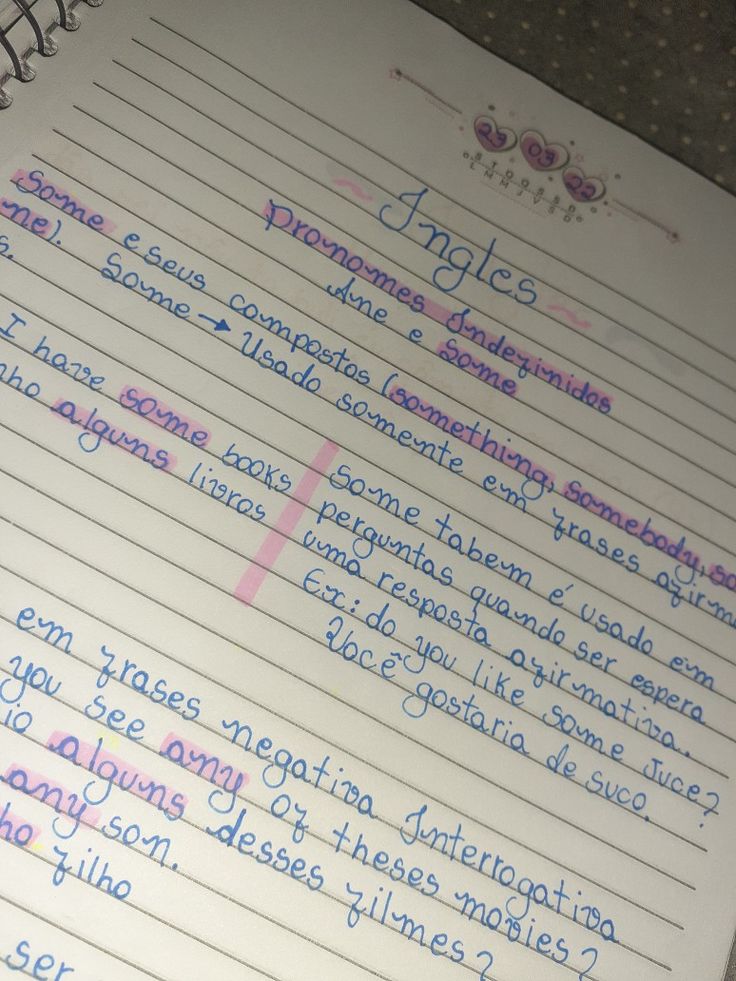 29 03 22
D S T Q Q S S
D L M M J V S
~ Ingles ~
Pronomes Indefinidos
Ane e Some
Some e seus compostos (something, somebody, so
me). Some → Usado somente em frases afirm
s.
I have some books
nho alguns livros
Some tabem é usado em
perguntas quando ser espera
uma resposta afirmativa.
Ex: do you like some Juce?
Você gostaria de suco.
em frases negativa Interrogativa
you see any of theses movies?
io alguns desses filmes?
any son.
ho filho
ser